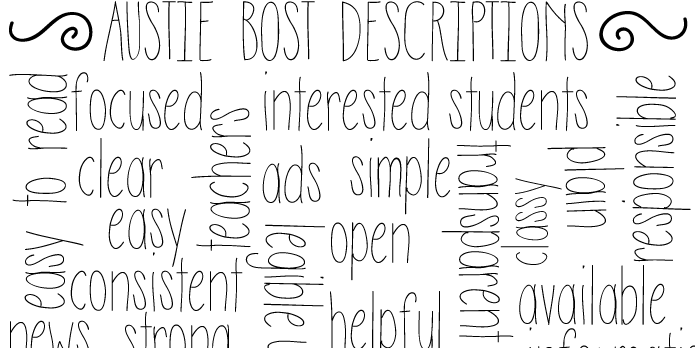 AUSTIE BOST DESCRIPTIONS
easy to read
focused
interested students
responsible
teachers
clear
ads
simple
transparent
plain
classy
easy
legible
open
consistent
available
helpful
news
strong